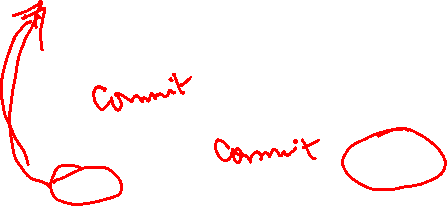 Commit
Commit